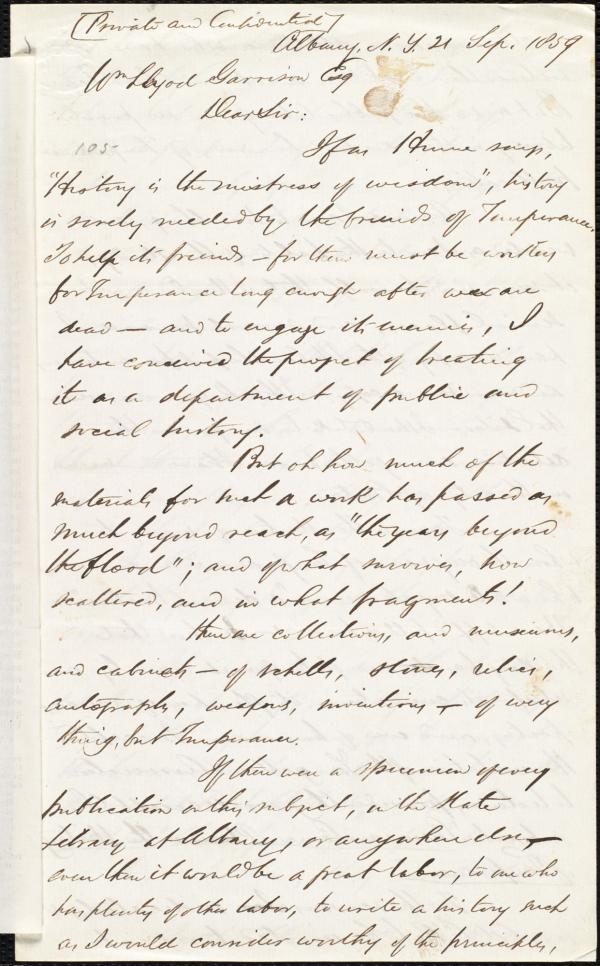 [Private and Confidential]
Albany, N. Y. 21 Sep. 1859
Wm Llyod Garrison Esq
Dear Sir:
105
If as Hume says,
"History is the mistress of wisdom", history
is sorely needed by the friends of Temperance.
To help its friends - for there must be workers
for Temperance long enough after we are
dead — and to engage its enemies, I
have conceived the project of treating
it as a department of public and
social history.
But oh how much of the
materials for such a work has passed as
much beyond reach, as "the years beyond
the flood"; and of what survives, how
scattered, and in what fragments!
There are collections, and museums,
and cabinets — of shells, stones, relics,
autographs, weapons, inventions — of every
thing, but Temperance.
If there were a specimen of every
publication on this subject, in the State
Library at Albany, or anywhere else —
even then it would be a great labor, to me who
has plenty of other labor, to write a history such
as I would consider worthy of the principles,